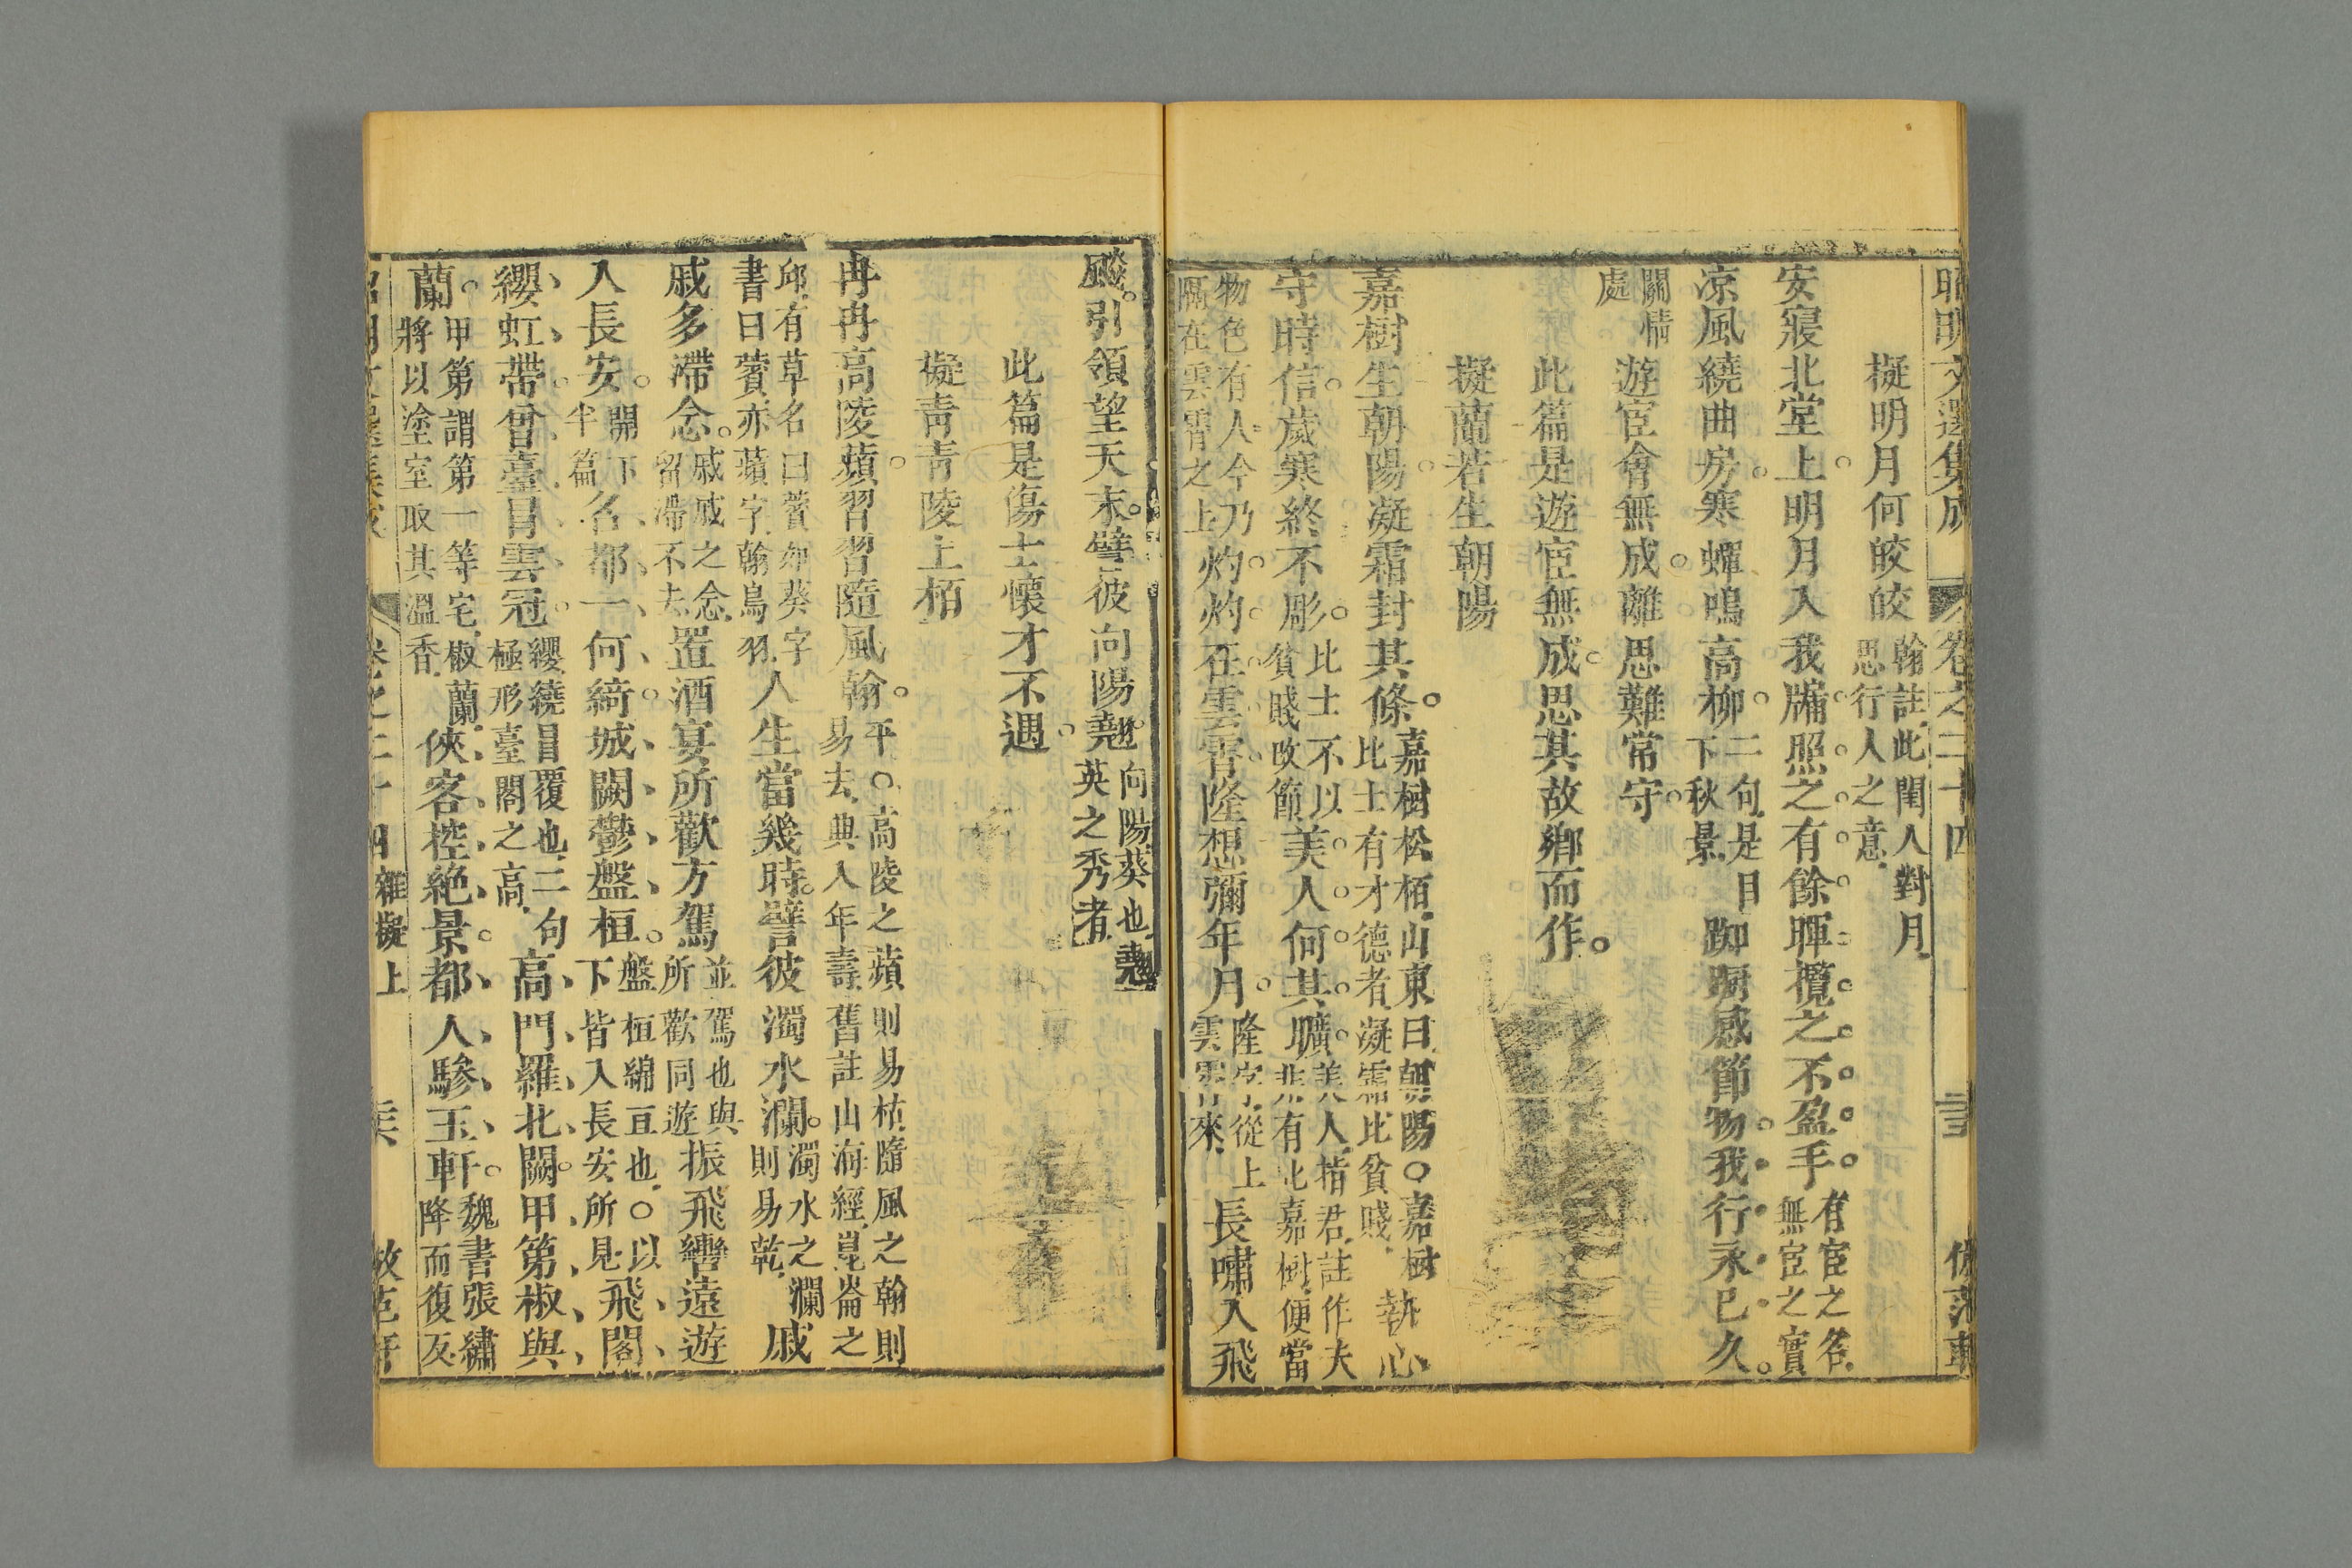 昭明文選集成 卷之三十四
擬明月何皎皎 翰註此閨人對月思行人之意
安寢北堂上明月入我牖照之有餘暉攬之不盈手 有宦之名無宦之實
凉風繞曲房寒蟬鳴高柳 二句是目下秋景 踟蹰感節物我行永已久
關情處 遊宦會無成離思難常守
此篇是遊宦無成思其故鄉而作
擬蘭若生朝陽
嘉樹生朝陽凝霜封其條 嘉樹松栢山東曰朝陽○嘉樹比士有才德者凝霜比貧賤 執心
守時信歲寒終不彫 比士不以貧賤改節 美人何其曠 美人指君註作夫非有此嘉樹便當
物色有人今乃隔在雲霄之上 灼灼在雲霄隆想彌年月 隆字從上雲霄來 長嘯入飛
飇引領望天末譬彼向陽翹 向陽葵也翹英之秀者
此篇是傷士懷才不遇
擬青青陵上栢
冉冉高陵蘋習習隨風翰 平○高陵之蘋則易枯隨風之翰則易去典入年壽舊註山海經崑崙之
邱有草名曰薲如葵字書曰薲亦蘋字翰鳥羽 人生當幾時譬彼濁水瀾 濁水之瀾則易乾 戚
戚多滯念 戚戚之念留滯不去 置酒宴所歡方駕 並駕也與所歡同遊 振飛轡遠遊
入長安 開下半篇 名都一何綺城闕鬱盤桓 盤桓綿亘也○以下皆入長安所見 飛閣
纓虹帶曾臺冒雲冠 纓繞冒覆也二句極形臺閣之高 高門羅北闕甲第椒與
蘭 甲第謂第一等宅椒蘭將以塗室取其溫香 俠客控絕景都人驂玉軒 魏書張繡降而復反
卷之三十四 雜擬上